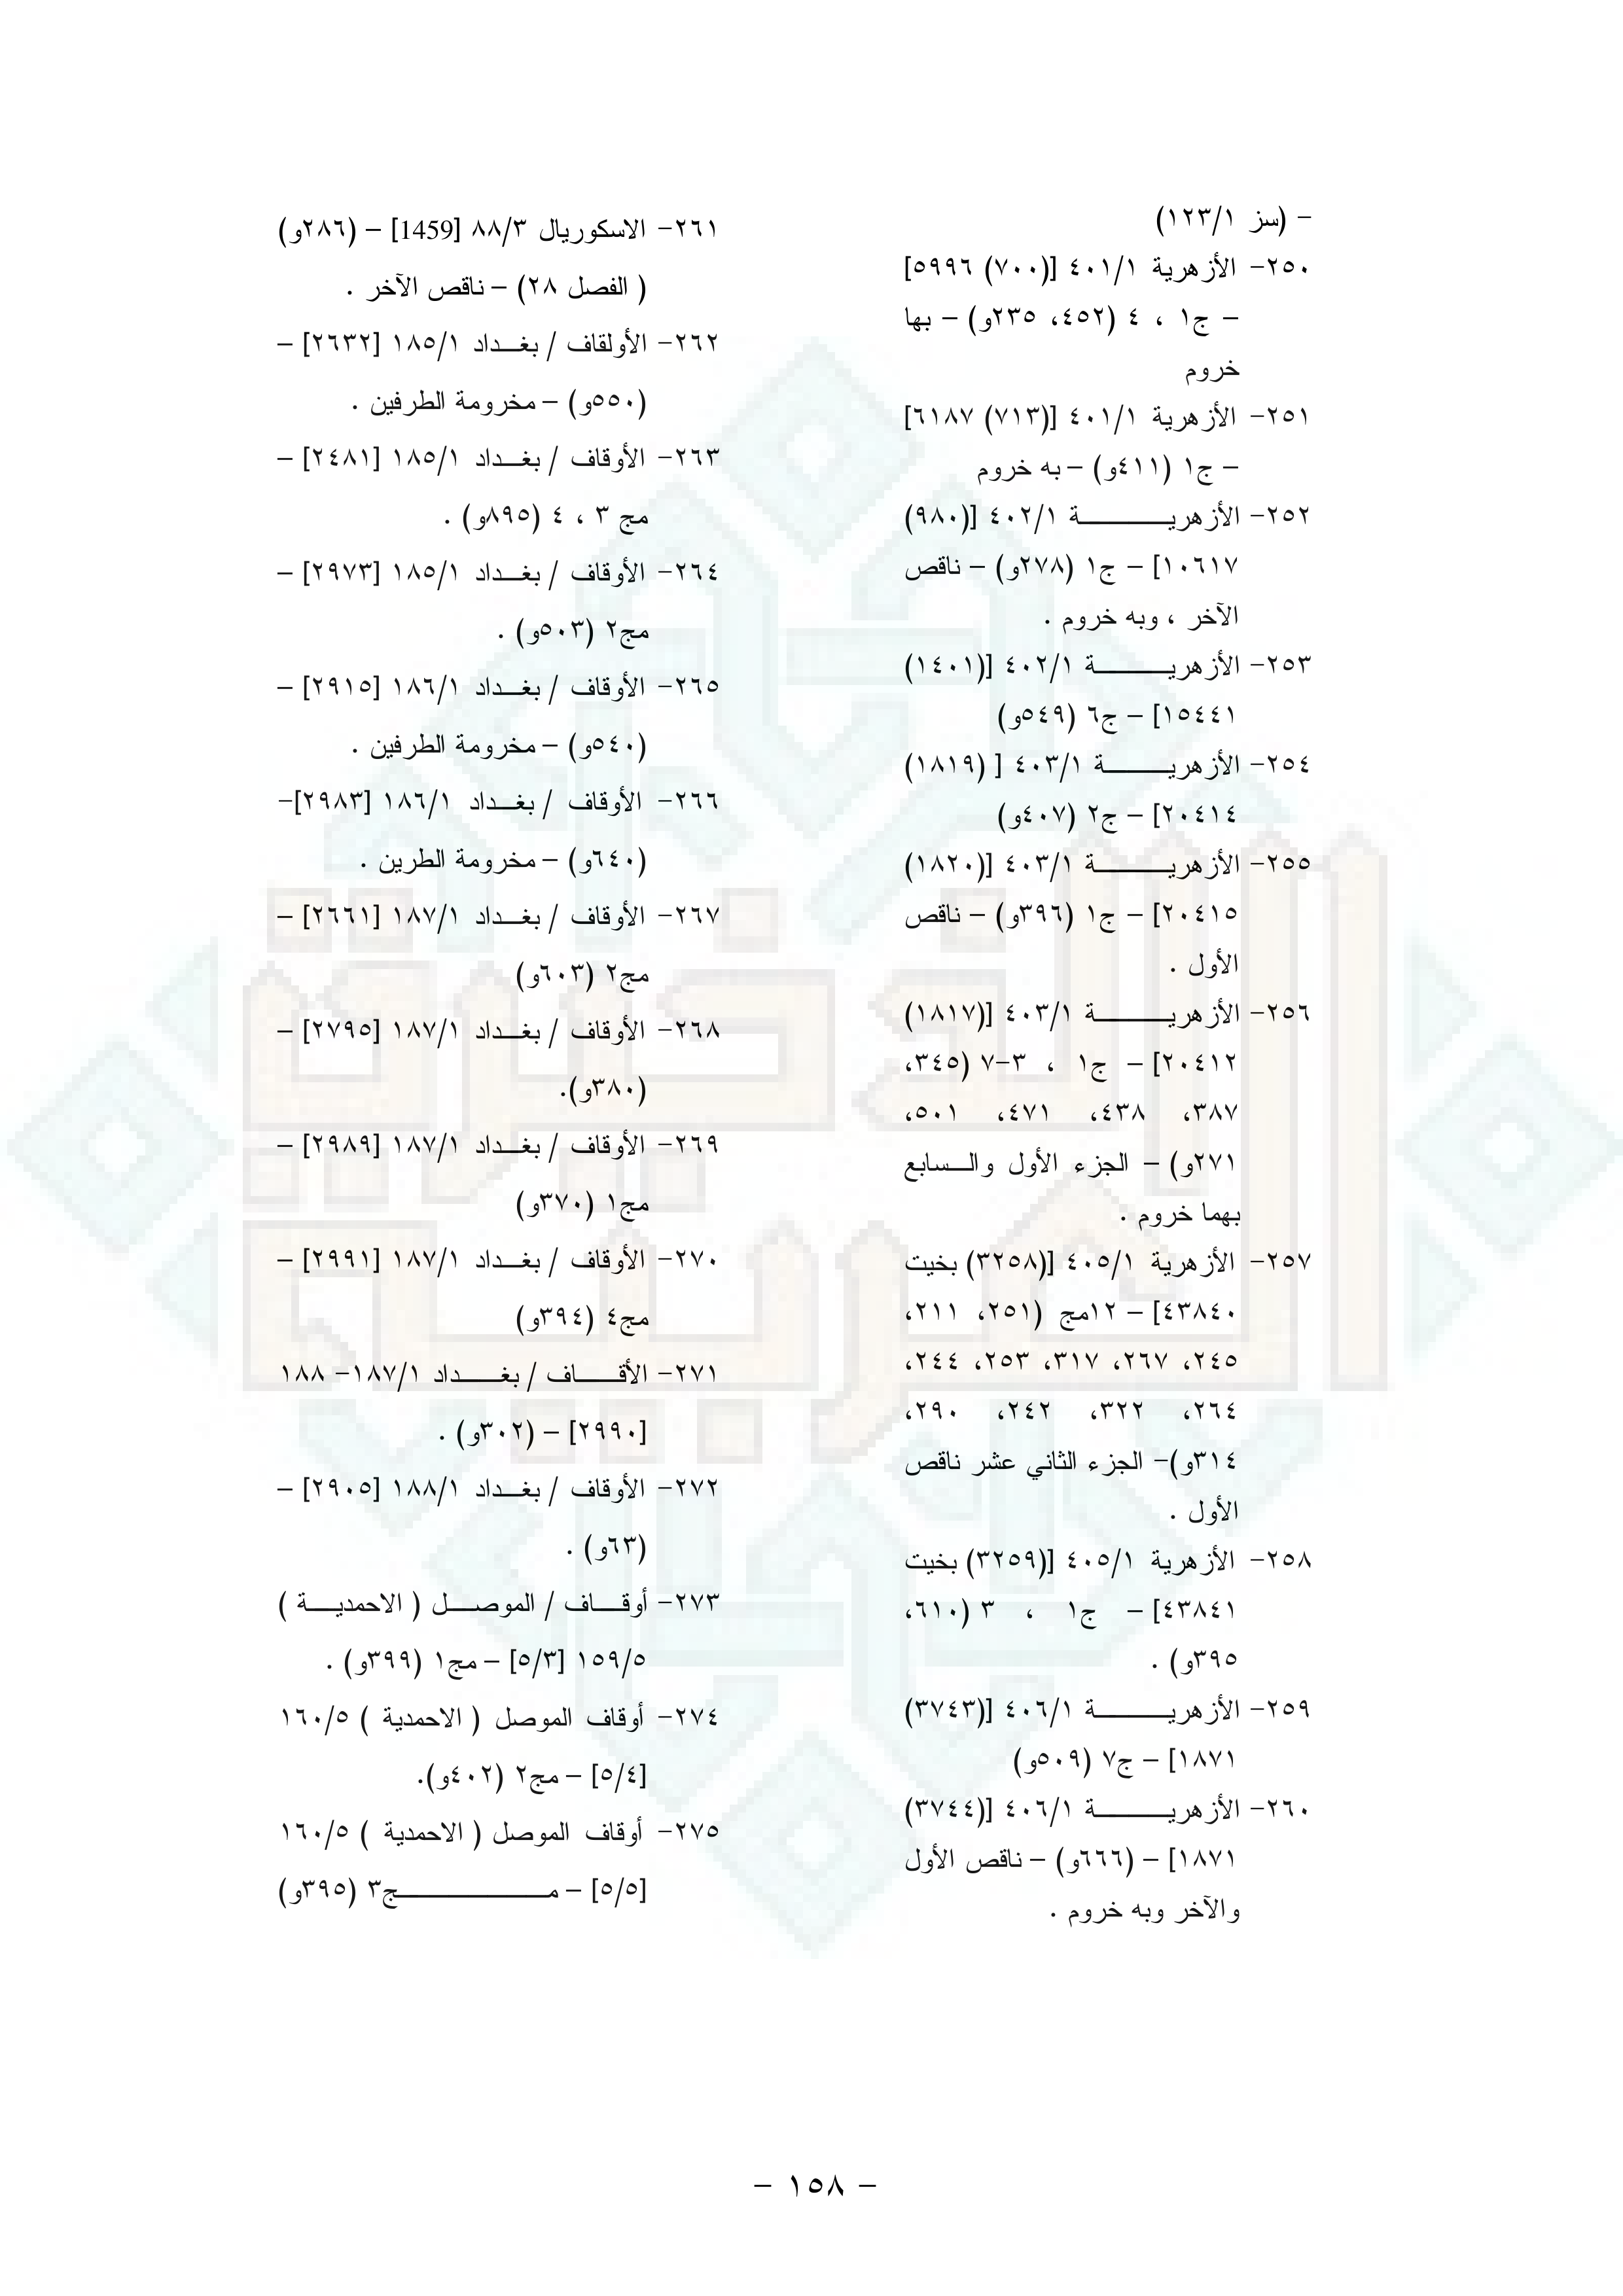 - (سز ١٢٣/١)
٢٥٠- الأزهرية ٤٠١/١ [(٧٠٠) ٥٩٩٦]
- ج١ ، ٤ (٤٥٢، ٢٣٥و) – بها
خروم
٢٥١- الأزهرية ٤٠١/١ [(٧١٣) ٦١٨٧]
- ج١ (٤١١و) – به خروم
٢٥٢- الأزهريـــــــــة ٤٠٢/١ [(٩٨٠)
١٠٦١٧] – ج١ (٢٧٨و) – ناقص
الآخر ، وبه خروم .
٢٥٣- الأزهريـــــــــة ٤٠٢/١ [(١٤٠١)
١٥٤٤١] – ج٦ (٥٤٩و)
٢٥٤- الأزهريـــــــــة ٤٠٣/١ [ (١٨١٩)
٢٠٤١٤] – ج٢ (٤٠٧و)
٢٥٥- الأزهريـــــــــة ٤٠٣/١ [(١٨٢٠)
٢٠٤١٥] – ج١ (٣٩٦و) – ناقص
الأول .
٢٥٦- الأزهريـــــــــة ٤٠٣/١ [(١٨١٧)
٢٠٤١٢] – ج١ ، ٣-٧ (٣٤٥،
٣٨٧، ٤٣٨، ٤٧١، ٥٠١،
٢٧١و) – الجزء الأول والـــسابع
بهما خروم .
٢٥٧- الأزهرية ٤٠٥/١ [(٣٢٥٨) بخيت
٤٣٨٤٠] – ١٢مج (٢٥١، ٢١١،
٢٤٥، ٢٦٧، ٣١٧، ٢٥٣، ٢٤٤،
٢٦٤، ٣٢٢، ٢٤٢، ٢٩٠،
٣١٤و)- الجزء الثاني عشر ناقص
الأول .
٢٥٨- الأزهرية ٤٠٥/١ [(٣٢٥٩) بخيت
٤٣٨٤١] – ج١ ، ٣ (٦١٠،
٣٩٥و) .
٢٥٩- الأزهريـــــــــة ٤٠٦/١ [(٣٧٤٣)
١٨٧١] – ج٧ (٥٠٩و)
٢٦٠- الأزهريـــــــــة ٤٠٦/١ [(٣٧٤٤)
١٨٧١] – (٦٦٦و) – ناقص الأول
والآخر وبه خروم .
٢٦١- الاسكوريال ٨٨/٣ [1459] – (٢٨٦و)
( الفصل ٢٨) – ناقص الآخر .
٢٦٢- الأولقاف / بغـــداد ١٨٥/١ [٢٦٣٢] –
(٥٥٠و) – مخرومة الطرفين .
٢٦٣- الأوقاف / بغـــداد ١٨٥/١ [٢٤٨١] –
مج ٣ ، ٤ (٨٩٥و) .
٢٦٤- الأوقاف / بغـــداد ١٨٥/١ [٢٩٧٣] –
مج٢ (٥٠٣و) .
٢٦٥- الأوقاف / بغـــداد ١٨٦/١ [٢٩١٥] –
(٥٤٠و) – مخرومة الطرفين .
٢٦٦- الأوقاف / بغـــداد ١٨٦/١ [٢٩٨٣]-
(٦٤٠و) – مخرومة الطرين .
٢٦٧- الأوقاف / بغـــداد ١٨٧/١ [٢٦٦١] –
مج٢ (٦٠٣و)
٢٦٨- الأوقاف / بغـــداد ١٨٧/١ [٢٧٩٥] –
(٣٨٠و).
٢٦٩- الأوقاف / بغـــداد ١٨٧/١ [٢٩٨٩] –
مج١ (٣٧٠و)
٢٧٠- الأوقاف / بغـــداد ١٨٧/١ [٢٩٩١] –
مج٤ (٣٩٤و)
٢٧١- الأقـــــاف / بغـــــداد ١٨٧/١- ١٨٨
[٢٩٩٠] – (٣٠٢و) .
٢٧٢- الأوقاف / بغـــداد ١٨٨/١ [٢٩٠٥] –
(٦٣و) .
٢٧٣- أوقـــاف / الموصـــل ( الاحمديـــة )
١٥٩/٥ [٥/٣] – مج١ (٣٩٩و) .
٢٧٤- أوقاف الموصل ( الاحمدية ) ١٦٠/٥
[٥/٤] – مج٢ (٤٠٢و).
٢٧٥- أوقاف الموصل ( الاحمدية ) ١٦٠/٥
[٥/٥] – مـــــــــــــج٣ (٣٩٥و)
- ١٥٨ -